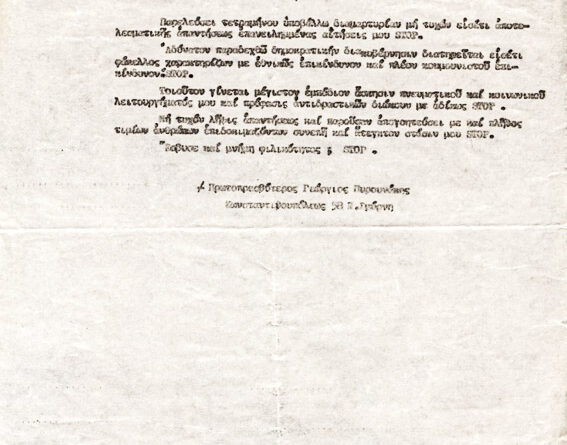 Παρελεύσει τετραμήνου ὑποβάλλω διαμαρτυρίαν μή τυχών εἰσέτι ἀποτε-
λεσματικῆς ἀπαντήσεως ἐπανειλημμένας αἰτήσεις μου STOP.
Ἀδύνατον παραδεχθῶ δημοκρατικήν διακυβέρνησιν διατηρεῖται εἰσέτι
φάκελλος χαρακτηρίζων με ἐθνικῶς ἐπικίνδυνον καί πλέον κομμουνιστοῦ ἐπι-
κίνδυνον.STOP.
Τοιοῦτον γίνεται μέγιστον ἐμπόδιον ἄσκησιν πνευματικοῦ καί κοινωνικοῦ
λειτουργήματός μου καί πρόφασις ἀντιδραστικῶν διώκουν με ἀδίκως STOP .
Μή τυχών λῆξις ἀπαντήσεως καί παροῦσαν ἀπογοητεύσει με καί πλῆθος
τιμίων ἀνθρώπων ἐπιδοκιμαζόντων συνεπῆ καί ἄτεγκτον στάσιν μου STOP.
Ἔσβυσε καί μνήμη φιλικότητος ; STOP .
Πρωτοπρεσβύτερος Γεώργιος Πυρουνάκης
Κωνσταντινουπόλεως 58